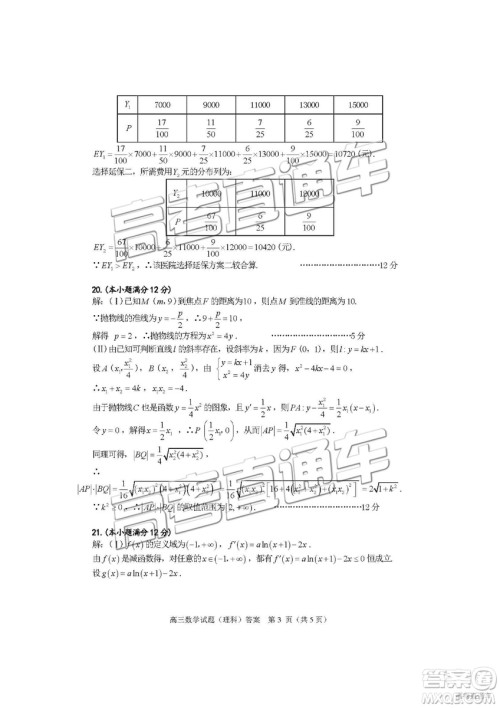 Y₁ 7000 9000 11000 13000 15000
P 17/100 11/50 7/25 6/25 9/100
EY₁=17/100×7000+11/50×9000+7/25×11000+6/25×13000+9/100×15000=10720(元).
选择延保二,所需费用Y₂元的分布列为:
Y₂ 10000 11000 12000
P 67/100 6/25 9/100
EY₂=67/100×10000+6/25×11000+9/100×12000=10420(元).
∵EY₁>EY₂,∴该医院选择延保方案二较合算. ………………12分
20.(本小题满分12分)
解:(Ⅰ)已知M(m,9)到焦点F的距离为10,则点M到准线的距离为10.
∵抛物线的准线为y=-p/2,∴9+p/2=10,
解得 p=2,∴抛物线的方程为x²=4y. ………………5分
(Ⅱ)由已知可判断直线l的斜率存在,设斜率为k,因为F(0,1),则l:y=kx+1.
设A(x₁,x₁²/4),B(x₂,x₂²/4),由{y=kx+1 x²=4y 消去y得,x²-4kx-4=0,
∴x₁+x₂=4k,x₁x₂=-4.
由于抛物线C也是函数y=1/4x²的图象,且y'=1/2x,则PA:y-x₁²/4=1/2x₁(x-x₁).
令y=0,解得x=1/2x₁,∴P(1/2x₁,0),从而|AP|=1/4√(x₁²(4+x₁²)).
同理可得,|BQ|=1/4√(x₂²(4+x₂²)),
∴
|AP|·|BQ|=1/16√((x₁x₂)²(4+x₁²)(4+x₂²))=1/16√((x₁x₂)²[16+4(x₁²+x₂²)+(x₁x₂)²])=2√(1+k²).
∵k²≥0,∴|AP|·|BQ|的取值范围为[2,+∞). ………………12分
21.(本小题满分12分)
解:(Ⅰ)f(x)的定义域为(-1,+∞),f'(x)=aln(x+1)-2x.
由f(x)是减函数得,对任意的x∈(-1,+∞),都有f'(x)=aln(x+1)-2x≤0恒成立.
设g(x)=aln(x+1)-2x.
高三数学试题(理科)答案 第 3 页(共 5 页)
高考直通车
高考直通车